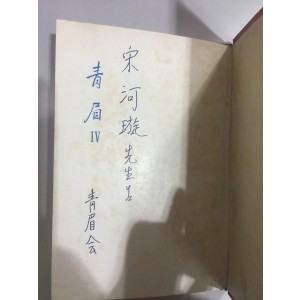 宋河璇先生
青眉 IV
青眉会